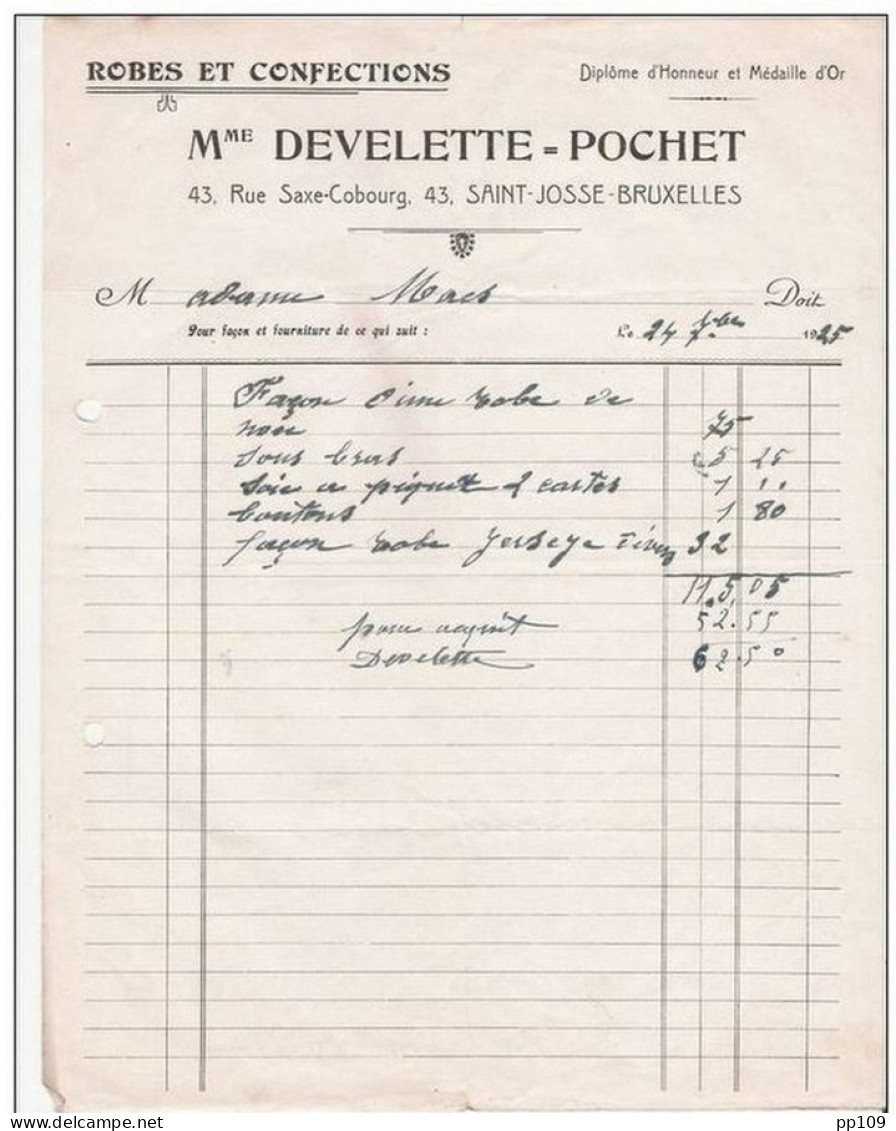 ROBES ET CONFECTIONS
Diplôme d'Honneur et Médaille d'Or
MME DEVELETTE=POCHET
43, Rue Saxe-Cobourg, 43, SAINT-JOSSE-BRUXELLES
Madame Maes Doit
Pour façon et fourniture de ce qui suit : Le 24 7bre 1925
Façon d'une robe de
75
sous bras 5 25
Soie a piquer 2 cartes 1 "
boutons 1 80
façon robe Jerseye 32
115.05
52.55
pour acquit
Develette 62.50
www.delcampe.net
pp109